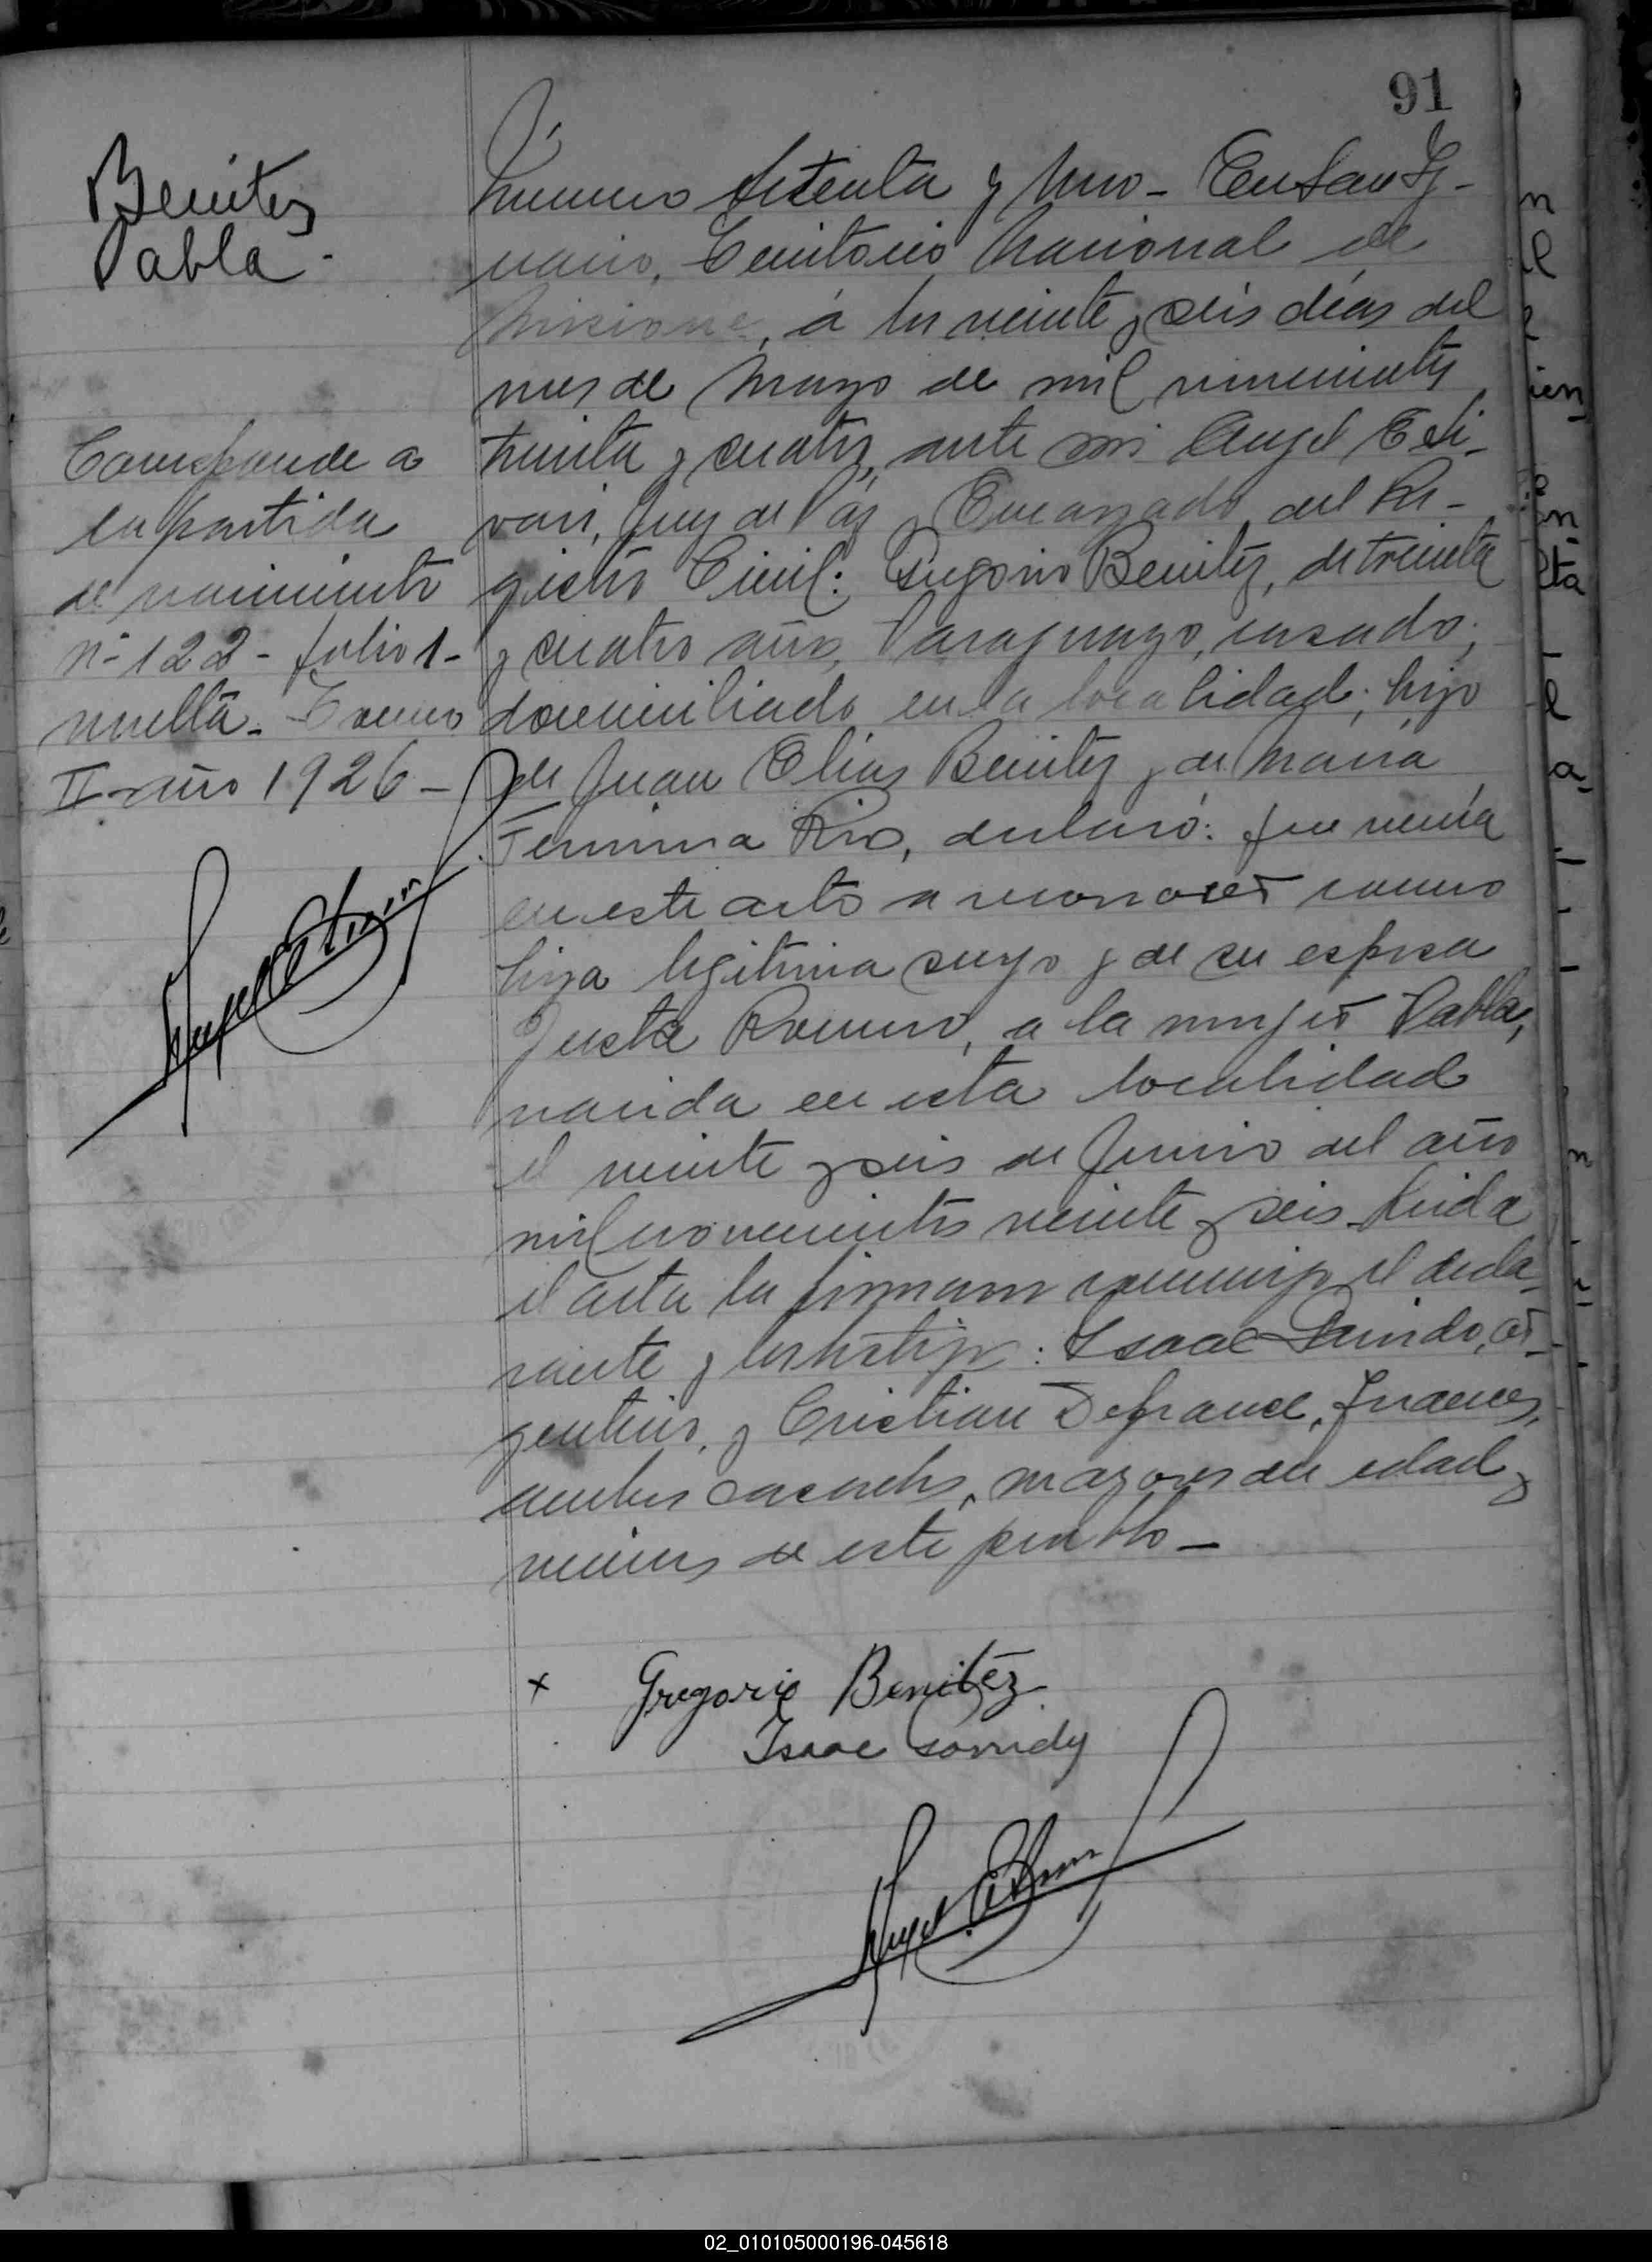 91
Benitez
Pabla.
Número Setenta y Uno - En San Ig-
nacio, Territorio Nacional de
Misiones, á los veinte y seis días del
mes de Mayo de mil novecientos
treinta y cuatro, ante mi Angel E
Juez de Páz y Encargado del Re-
gistro Civil: Gregorio Benitez, de treinta
y cuatro años, Paraguayo, casado,
domiciliado en la localidad; hijo
de Juan Elias Benitez y de María
Rio, declaró: que venía
en este acto a reconocer como
hija legitima suya y de su esposa
Justa Romero, a la mujer Pabla,
nacida en esta localidad
el veinte y seis de Junio del año
mil novecientos veinte y seis. Leida
el acta la firmaron conmigo el decla-
rante y los testigos: Isaac ar-
gentino, y Cristian Defrance, Frances,
ambos casados, mayores de edad y
vecinos de este pueblo -
Corresponde a
la partida
de nacimiento
n- 122 - folio 1-
vuelta. Tomo
II - año 1926 -
x Gregorio Benitez
Isaac